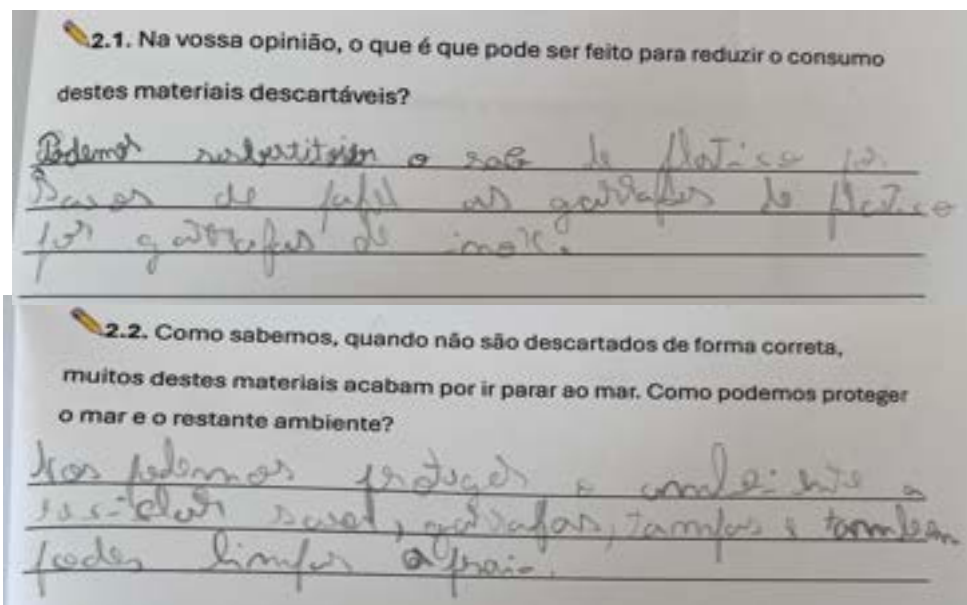 2.1. Na vossa opinião, o que é que pode ser feito para reduzir o consumo
destes materiais descartáveis?
Podemos o saco de plático por
Sacos de papel as garrafas de plático
por garrafas de inox.
2.2. Como sabemos, quando não são descartados de forma correta,
muitos destes materiais acabam por ir parar ao mar. Como podemos proteger
o mar e o restante ambiente?
Nos podemos proteger o ambiente a
sacos, garrafas, tampas e tambem
podes limpar a praia.